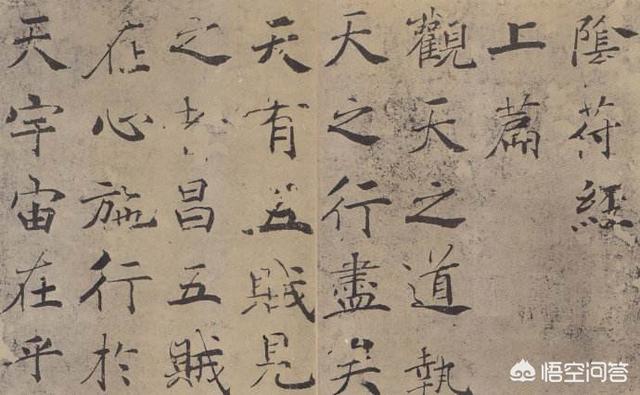 陰符經
上篇
觀天之道執
天之行盡矣
天有五賊見
之者昌五賊
在心施行於
天宇宙在乎
悟空问答